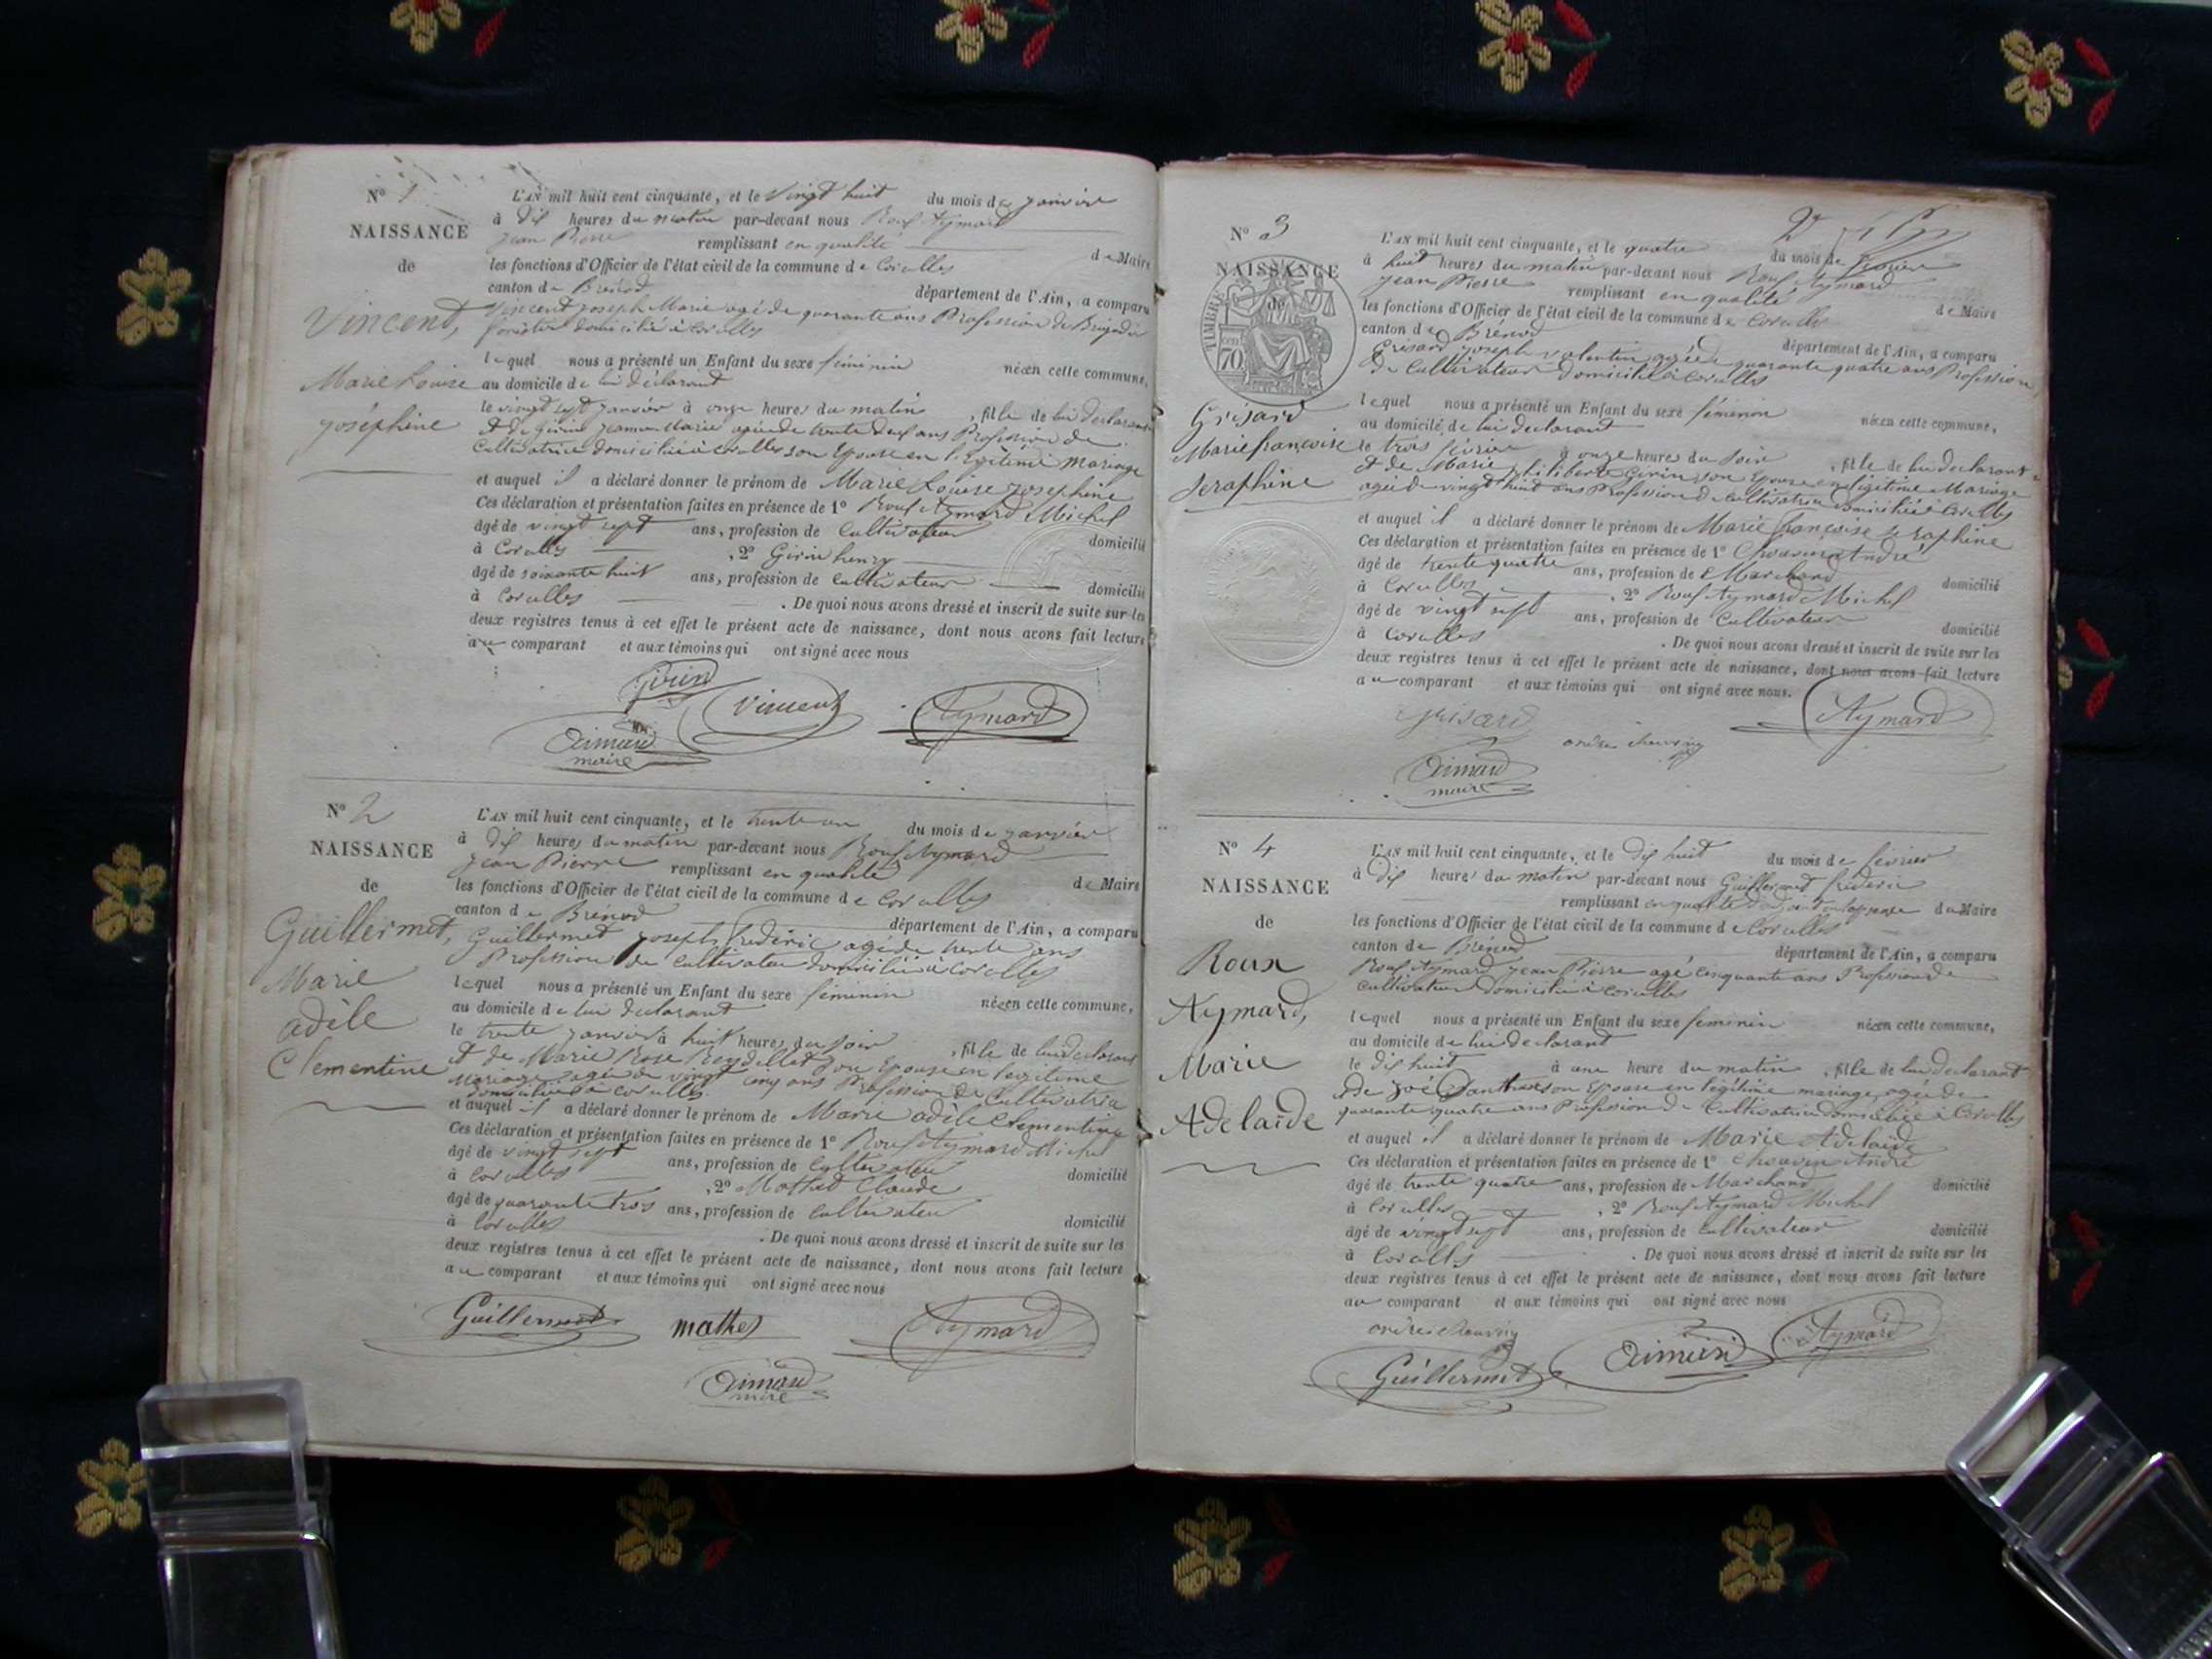 Nº 1
NAISSANCE
de
Vincent,
Marie Louise
joséphine
L'AN mil huit cent cinquante, et le Vingt huit du mois de janvier
à dix heures du matin par-devant nous Roux Aymard
jean Pierre remplissant en qualité de Maire
les fonctions d'Officier de l'état civil de la commune de Corcelles
canton de Brénod département de l'Ain, a comparu
Vincent joseph Marie agé de quarante ans Profession de Brigadier
forestier domicilié à Corcelles
lequel nous a présenté un Enfant du sexe féminin née en cette commune,
au domicile de lui déclarant
le vingt sept janvier à onze heures du matin, fille de lui declarant
et de Girin jeanne Marie agée de trente deux ans Profession de
Cultivatrice domiciliée à corcelles son Epouse en légitime mariage
et auquel il a déclaré donner le prénom de Marie Louise josephine
Ces déclaration et présentation faites en présence de 1º Roux Aymard Michel
âgé de vingt sept ans, profession de Cultivateur domicilié
à Corcelles, 2º Girin henry
âgé de soixante huit ans, profession de cultivateur domicilié
à Corcelles. De quoi nous avons dressé et inscrit de suite sur les
deux registres tenus à cet effet le présent acte de naissance, dont nous avons fait lecture
au comparant et aux témoins qui ont signé avec nous
Girin
Vincent
Aymard
Aimard
maire
Nº 2
NAISSANCE
de
Guillermet,
Marie
adèle
Clementine
L'AN mil huit cent cinquante, et le trente un du mois de janvier
à dix heures du matin par-devant nous Roux Aymard
jean Pierre remplissant en qualité de Maire
les fonctions d'Officier de l'état civil de la commune de Corcelles
canton de Brénod département de l'Ain, a comparu
Guillermet joseph frédéric agé de trente ans
Profession de cultivateur domicilié à Corcelles
lequel nous a présenté un Enfant du sexe féminin née en cette commune,
au domicile de lui declarant
le trente janvier à huit heures du soir, fille de lui declarant
et de Marie Rose Reydellet son Epouse en legitime
Mariage agée de vingt cinq ans Profession de Cultivatrice
domiciliée à corcelles
et auquel il a déclaré donner le prénom de Marie adèle Clementine
Ces déclaration et présentation faites en présence de 1º Roux Aymard Michel
âgé de vingt sept ans, profession de Cultivateur domicilié
à corcelles, 2º Mathet Claude
âgé de quarante trois ans, profession de cultivateur domicilié
à Corcelles. De quoi nous avons dressé et inscrit de suite sur les
deux registres tenus à cet effet le présent acte de naissance, dont nous avons fait lecture
au comparant et aux témoins qui ont signé avec nous
Guillermet
mathet
Aymard
Aimard
maire
Nº 3
NAISSANCE
de
TIMBRE
70
Grisard
Marie françoise
Seraphine
L'AN mil huit cent cinquante, et le quatre du mois de février
à huit heures du matin par-devant nous Roux Aymard
jean Pierre remplissant en qualité de Maire
les fonctions d'Officier de l'état civil de la commune de Corcelles
canton de Brénod département de l'Ain, a comparu
Grisard joseph valentin agé de quarante quatre ans Profession
de Cultivateur domicilié à corcelles
lequel nous a présenté un Enfant du sexe féminin née en cette commune,
au domicile de lui declarant
le trois février à onze heures du soir, fille de lui declarant
et de Marie philiberte Girin son Epouse en légitime Mariage
agée de vingt huit ans Profession de cultivatrice domiciliée à Corcelles
et auquel il a déclaré donner le prénom de Marie françoise Seraphine
Ces déclaration et présentation faites en présence de 1º Chauvin André
âgé de trente quatre ans, profession de Marchand domicilié
à Corcelles, 2º Roux Aymard Michel
âgé de vingt sept ans, profession de Cultivateur domicilié
à Corcelles. De quoi nous avons dressé et inscrit de suite sur les
deux registres tenus à cet effet le présent acte de naissance, dont nous avons fait lecture
au comparant et aux témoins qui ont signé avec nous.
Grisard
Aymard
Aimard
maire
Nº 4
NAISSANCE
de
Roux
Aymard,
Marie
Adelaïde
L'AN mil huit cent cinquante, et le dix huit du mois de février
à dix heures du matin par-devant nous Guillermet frédéric
remplissant en qualité du Maire
les fonctions d'Officier de l'état civil de la commune de Corcelles
canton de Brénod département de l'Ain, a comparu
Roux Aymard jean Pierre agé cinquante ans Profession de
cultivateur domicilié à corcelles
lequel nous a présenté un Enfant du sexe féminin née en cette commune,
au domicile de lui declarant
le dix huit à une heure du matin, fille de lui declarant
de zoé son Epouse en légitime mariage agée de
quarante quatre ans Profession de Cultivatrice domiciliée à Corcelles
et auquel il a déclaré donner le prénom de Marie Adelaïde
Ces déclaration et présentation faites en présence de 1º Chauvin André
âgé de trente quatre ans, profession de Marchand domicilié
à Corcelles, 2º Roux Aymard Michel
âgé de vingt sept ans, profession de Cultivateur domicilié
à Corcelles. De quoi nous avons dressé et inscrit de suite sur les
deux registres tenus à cet effet le présent acte de naissance, dont nous avons fait lecture
au comparant et aux témoins qui ont signé avec nous
Guillermet
Aimard
Aymard